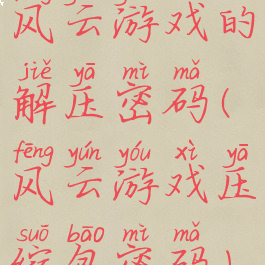 风云游戏的
jiě yā mì mǎ
解压密码(
fēng yún yóu xì yā
风云游戏压
suō bāo mì mǎ
缩包密码)